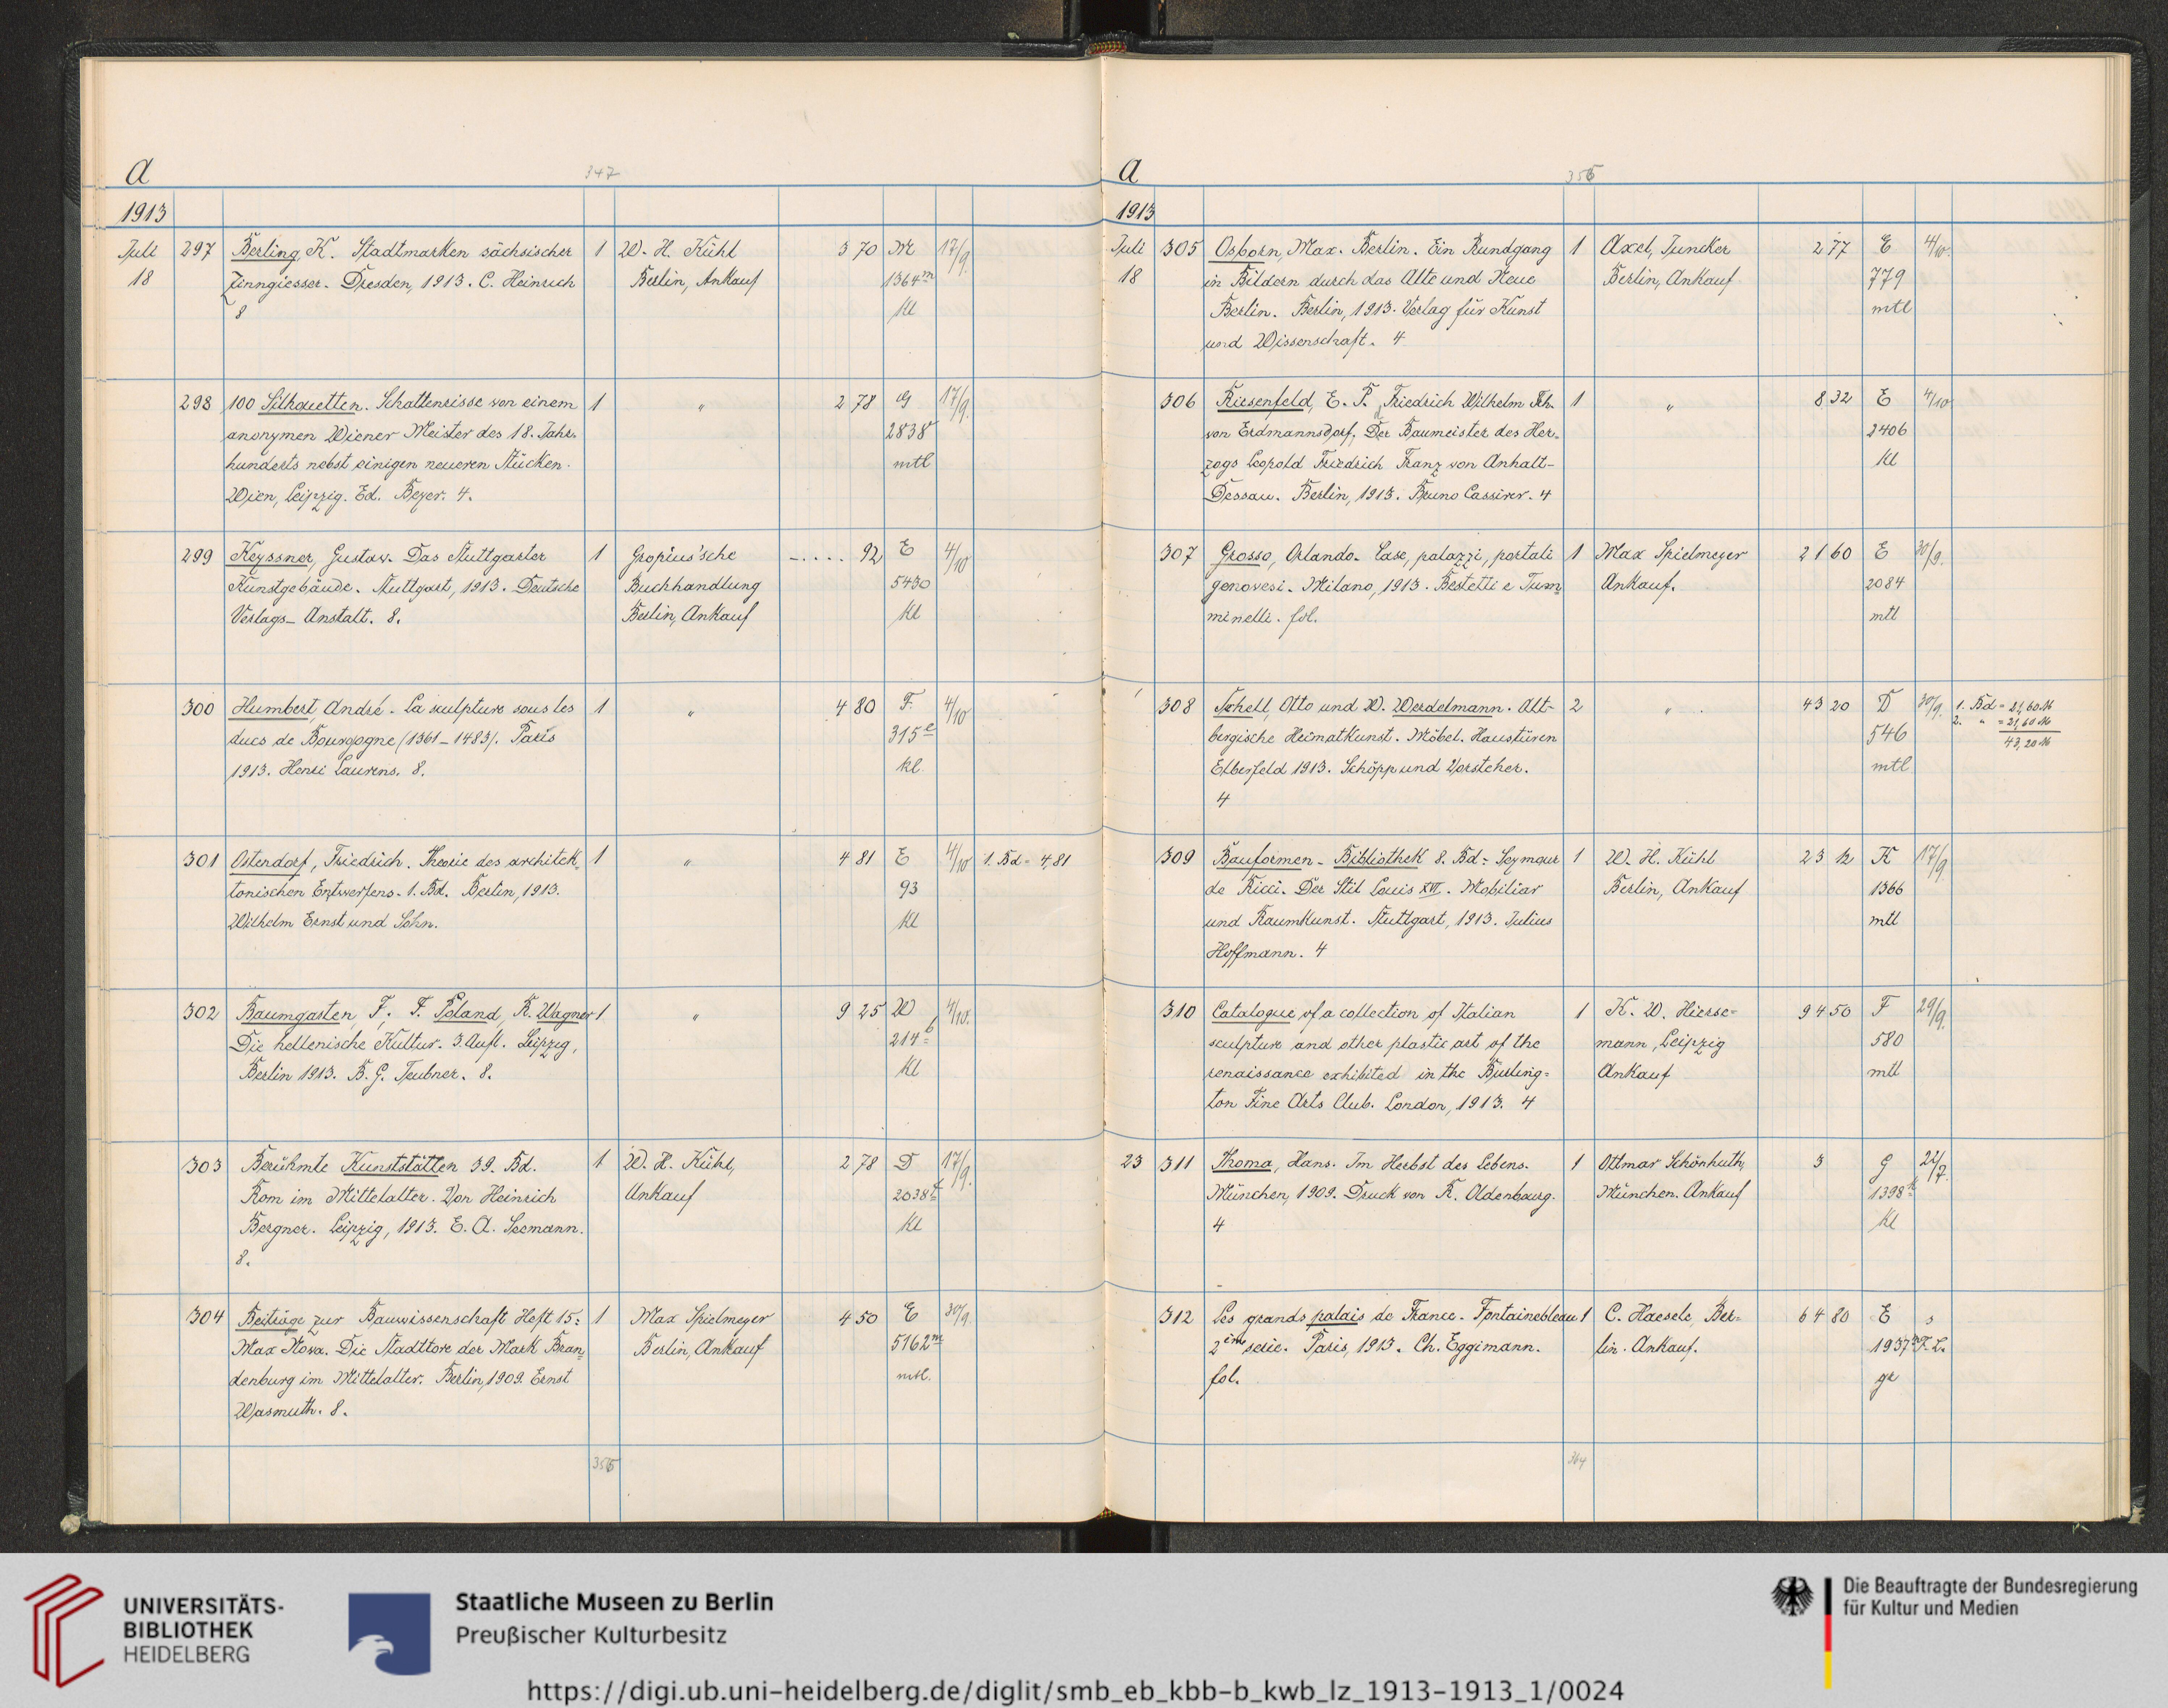 A
347
1913
Juli 297 Berling, K. Stadtmarken sächsischer 1 W. H. Kühl 3 70 M 17/9.
18 Zinngiesser. Dresden, 1913. C. Heinrich Berlin, Ankauf 1364m
8 kl
298 100 Silhouetten. Schattenrisse von einem 1 " 2 78 G 17/9.
anonymen Wiener Meister des 18. Jahr- 2838
hunderts nebst einigen neueren Stücken. mtl
Wien, Leipzig. Ed. Beyer. 4.
299 Keyssner, Gustav. Das Stuttgarter 1 Gropius'sche -.... 92 E 4/10
Kunstgebäude. Stuttgart, 1913. Deutsche Buchhandlung 5430
Verlags-Anstalt. 8. Berlin, Ankauf kl
300 Humbert, André. La sculpture sous les 1 " 4 80 F 4/10
ducs de Bourgogne (1361-1483). Paris 315e
1913. Henri Laurens. 8. kl.
301 Ostendorf, Friedrich. Theorie des architek- 1 " 4 81 E 4/10 1. Bd = 4,81
tonischen Entwerfens. 1. Bd. Berlin, 1913. 93
Wilhelm Ernst und Sohn. kl
302 Baumgarten, F., F. Poland, R. Wagner 1 " 9 25 W 4/10.
Die hellenische Kultur. 3. Aufl. Leipzig, 214b
Berlin 1913. B. G. Teubner. 8. kl
303 Berühmte Kunststätten 39. Bd. 1 W. H. Kühl, 2 78 D 17/9.
Rom im Mittelalter. Von Heinrich Ankauf 2038
Bergner. Leipzig, 1913. E. A. Seemann. kl
8.
304 Beiträge zur Bauwissenschaft Heft 15: 1 Max Spielmeyer 4 50 E 30/9
Max Nova. Die Stadttore der Mark Bran- Berlin, Ankauf 5162m
denburg im Mittelalter. Berlin, 1909. Ernst mtl.
Wasmuth. 8.
A
1913
Juli 305 Osborn, Max. Berlin. Ein Rundgang 1 Axel, Juncker 2 77 E 4/10.
18 in Bildern durch das Alte und Neue Berlin, Ankauf 779
Berlin. Berlin, 1913. Verlag für Kunst mtl
und Wissenschaft. 4
306 Riesenfeld, E. P. Friedrich Wilhelm Frh. 1 " 8 32 E 4/10
von Erdmannsdorf. Der Baumeister des Her- 2406
zogs Leopold Friedrich Franz von Anhalt- kl
Dessau. Berlin, 1913. Bruno Cassirer. 4
307 Grosso, Orlando. Case, palazzi, portali 1 Max Spielmeyer 21 60 E 30/9.
genovesi. Milano, 1913. Bestetti e Tum- Ankauf. 2084
minelli. fol. mtl
308 Schell, Otto und W. Werdelmann. Alt- 2 " 43 20 D 30/9. 1. Bd = 21,60 M
bergische Heimatkunst. Möbel. Haustüren 546 2. " = 21,60 M
Elberfeld 1913. Schöpp und Vorsteher. mtl 43,20 M
4
309 Bauformen-Bibliothek 8. Bd: Seymour 1 W. H. Kühl 23 12 K 17/9
de Ricci. Der Stil Louis XVI. Mobiliar Berlin, Ankauf 1366
und Raumkunst. Stuttgart, 1913. Julius mtl
Hoffmann. 4
310 Catalogue of a collection of Italian 1 K. W. Hierse- 94 50 F 29/9.
sculpture and other plastic art of the mann, Leipzig 580
renaissance exhibited in the Burling- Ankauf mtl
ton Fine Arts Club. London, 1913. 4
23 311 Thoma, Hans. Im Herbst des Lebens. 1 Ottmar Schönhuth, 3 G 22/7.
München, 1909. Druck von R. Oldenbourg. München. Ankauf 1398
4 kl
312 Les grands palais de France. Fontainebleau 1 C. Haesele, Ber- 64 80 E s
2ème serie. Paris, 1913. Ch. Eggimann. lin. Ankauf. 1937 F. L.
fol. gr
364
UNIVERSITÄTS-
BIBLIOTHEK
HEIDELBERG
Staatliche Museen zu Berlin
Preußischer Kulturbesitz
Die Beauftragte der Bundesregierung
für Kultur und Medien
https://digi.ub.uni-heidelberg.de/diglit/smb_eb_kbb-b_kwb_lz_1913-1913_1/0024